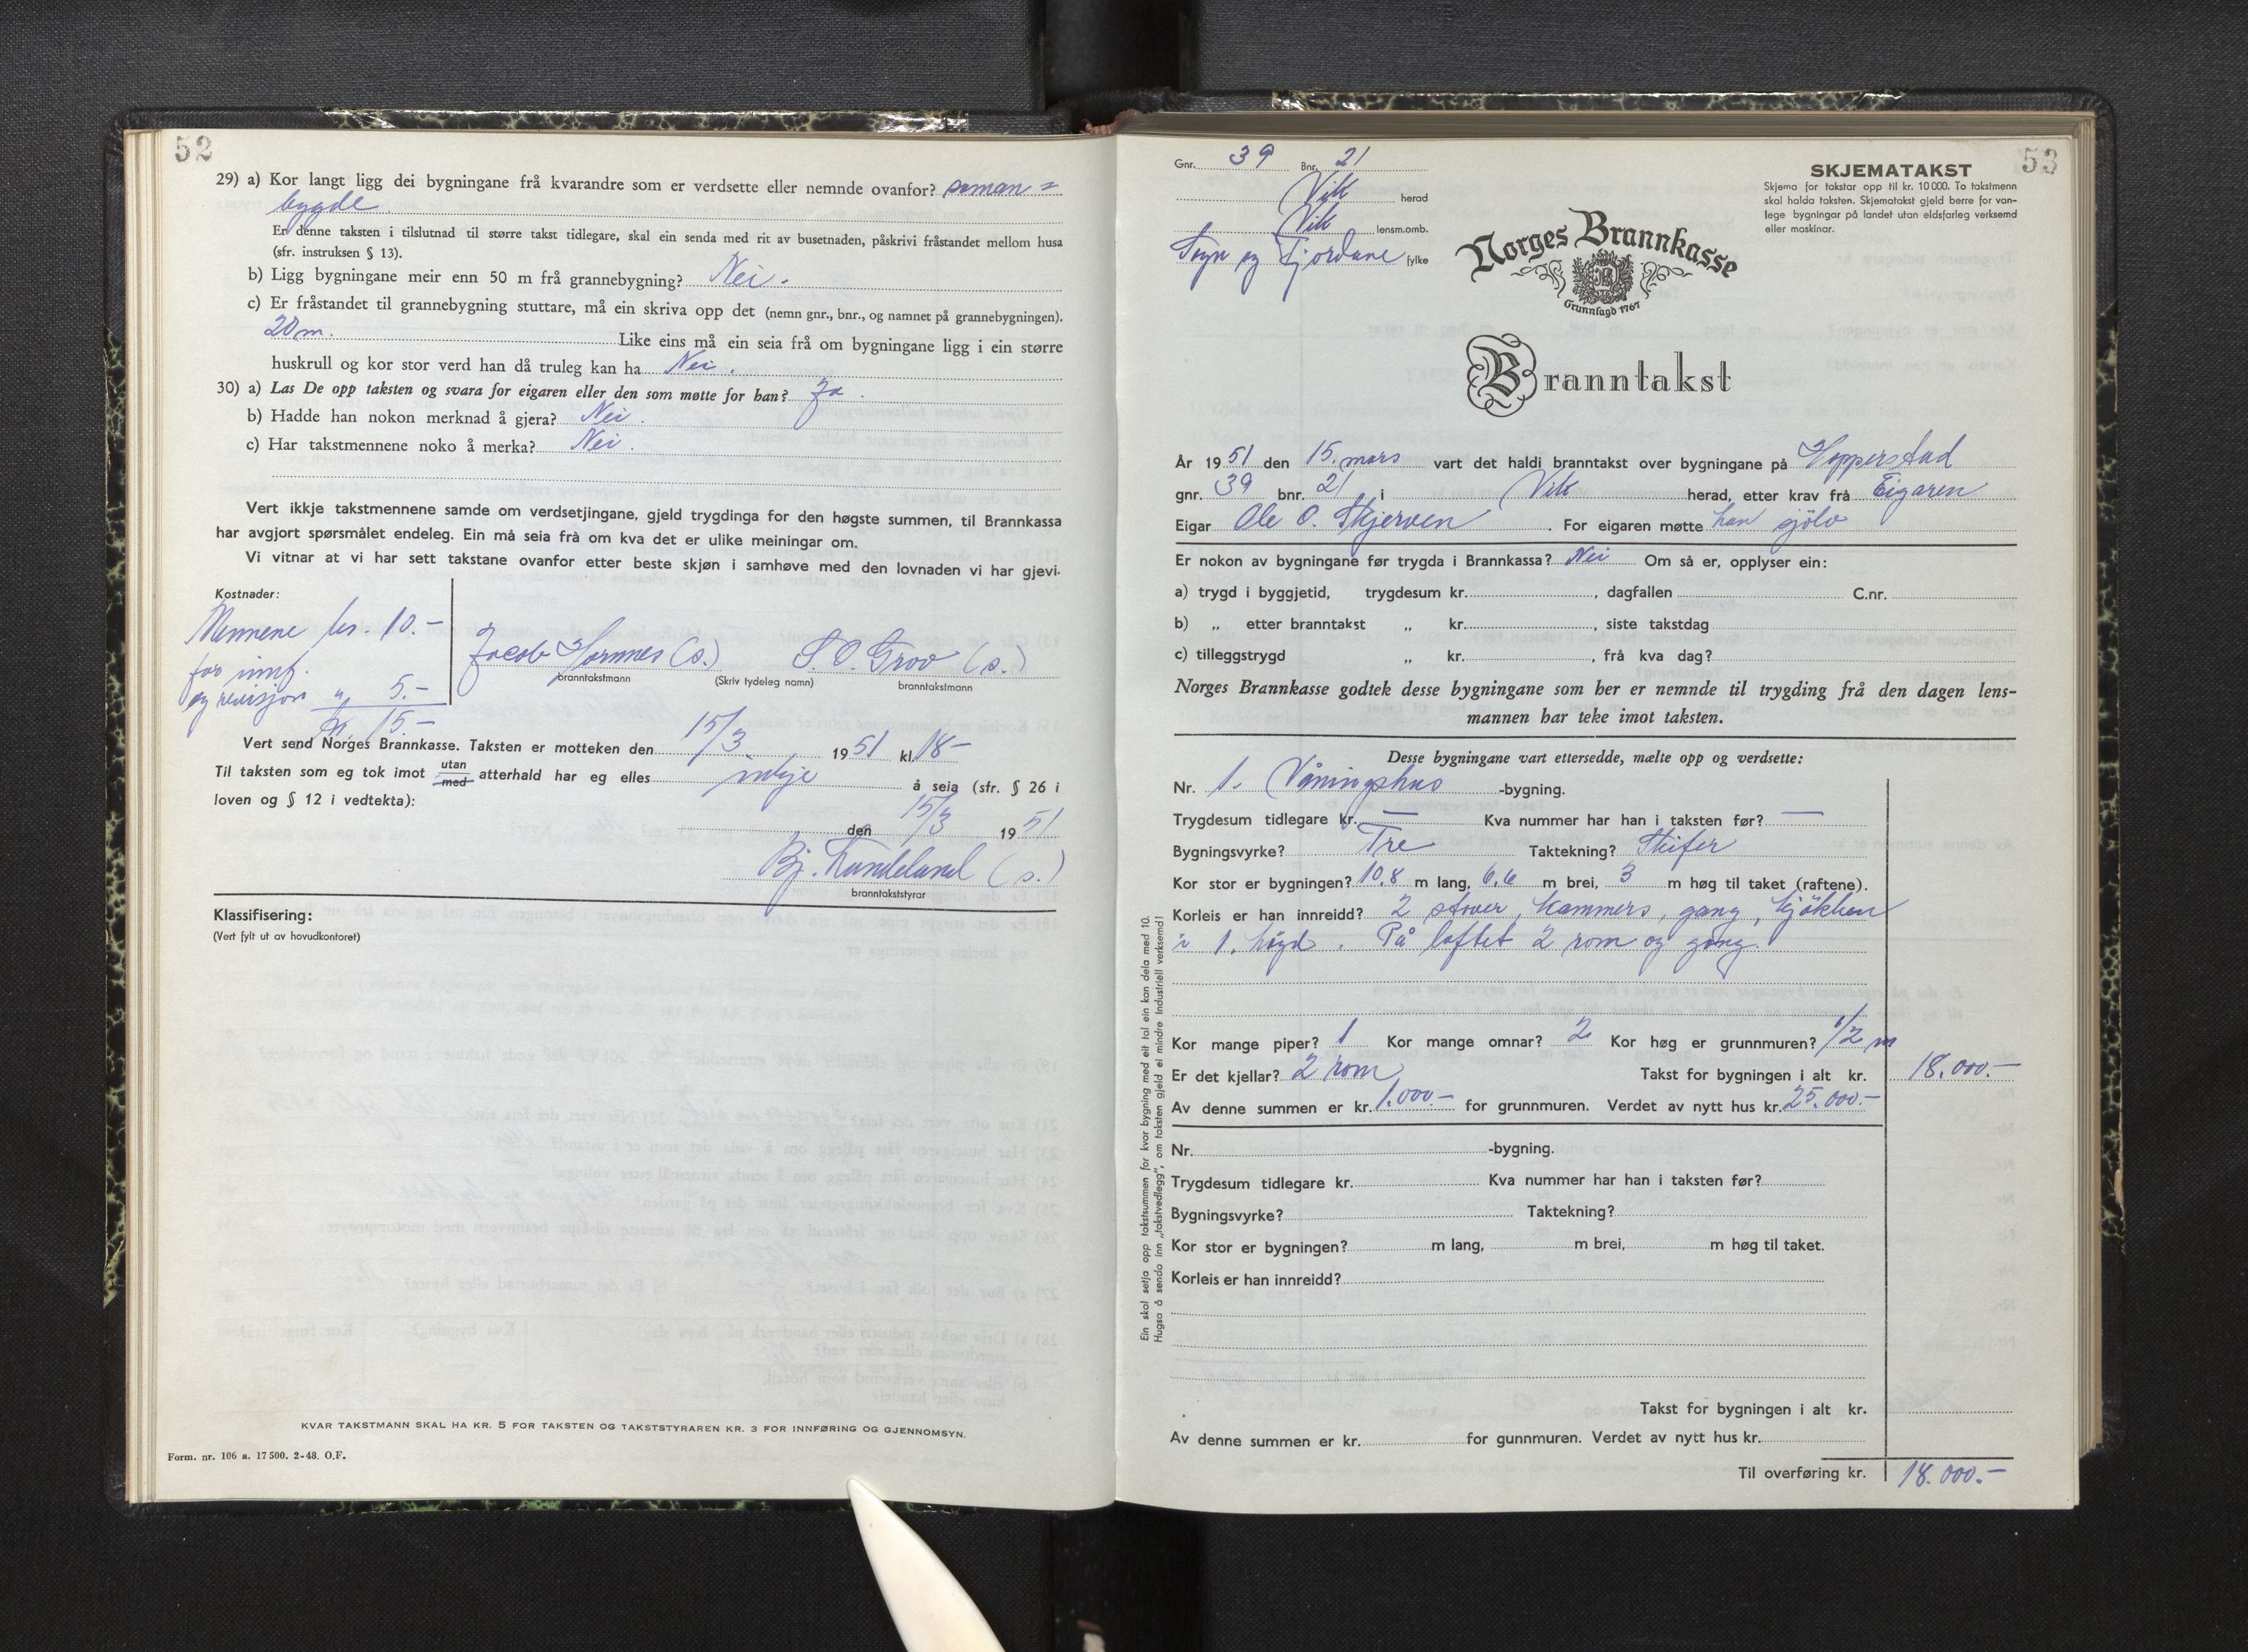 52
29) a) Kor langt ligg dei bygningane frå kvarandre som er verdsette eller nemnde ovanfor? saman=
bygde
Er denne taksten i tilslutnad til større takst tidlegare, skal ein senda med rit av busetnaden, påskrivi fråstandet mellom husa
(sfr. instruksen § 13).
b) Ligg bygningane meir enn 50 m frå grannebygning? Nei.
c) Er fråstandet til grannebygning stuttare, må ein skriva opp det (nemn gnr., bnr., og namnet på grannebygningen).
20 m. Like eins må ein seia frå om bygningane ligg i ein større
huskrull og kor stor verd han då truleg kan ha Nei.
30) a) Las De opp taksten og svara for eigaren eller den som møtte for han? Ja.
b) Hadde han nokon merknad å gjera? Nei.
c) Har takstmennene noko å merka? Nei.
Vert ikkje takstmennene samde om verdsetjingane, gjeld trygdinga for den høgste summen, til Brannkassa
har avgjort spørsmålet endeleg. Ein må seia frå om kva det er ulike meiningar om.
Vi vitnar at vi har sett takstane ovanfor etter beste skjøn i samhøve med den lovnaden vi har gjevi.
Kostnader:
Mennene kr. 10.-
for innf.
og revisjon " 5.-
kr. 15-
Jacob Hornnes (s.) S. O. Grov (s.)
branntakstmann (Skriv tydeleg namn) branntakstmann
Vert send Norges Brannkasse. Taksten er motteken den 15/3 1951 kl. 18-
Til taksten som eg tok imot utan
med atterhald har eg elles inkje å seia (sfr. § 26 i
loven og § 12 i vedtekta):
den 15/3 1951
Bj. Lundeland (s.)
branntakststyrar
Klassifisering:
(Vert fylt ut av hovudkontoret)
KVAR TAKSTMANN SKAL HA KR. 5 FOR TAKSTEN OG TAKSTSTYRAREN KR. 3 FOR INNFØRING OG GJENNOMSYN.
Form. nr. 106 a. 17500. 2-48. O.F.
53
Gnr. 39 Bnr. 21
Vik herad
Vik lensm.omb.
Sogn og Fjordane fylke
SKJEMATAKST
Skjema for takstar opp til kr. 10 000. To takstmenn
skal halda taksten. Skjematakst gjeld berre for van-
lege bygningar på landet utan eldsfarleg verksemd
eller maskinar.
Norges Brannkasse
Grunnlagd 1767
Branntakst
År 1951 den 15. mars vart det haldi branntakst over bygningane på Hopperstad
gnr. 39 bnr. 21 i Vik herad, etter krav frå Eigaren
Eigar Ole O. Skjerven. For eigaren møtte han sjölv
Er nokon av bygningane før trygda i Brannkassa? Nei Om så er, opplyser ein:
a) trygd i byggjetid, trygdesum kr. , dagfallen C.nr.
b) „ etter branntakst „ kr. , siste takstdag
c) tilleggstrygd „ kr. , frå kva dag?
Norges Brannkasse godtek desse bygningane som her er nemnde til trygding frå den dagen lens-
mannen har teke imot taksten.
Desse bygningane vart ettersedde, mælte opp og verdsette:
Nr. 1. Våningshus -bygning.
Trygdesum tidlegare kr. — Kva nummer har han i taksten før? —
Bygningsvyrke? Tre Taktekning? Skifer
Kor stor er bygningen? 10,8 m lang, 6,6 m brei, 3 m høg til taket (raftene).
Korleis er han innreidd? 2 stover, kammers, gang, kjökken
i 1. högd. På loftet 2 rom og gang.
Kor mange piper? 1 Kor mange omnar? 2 Kor høg er grunnmuren? 1/2 m
Er det kjellar? 2 rom Takst for bygningen i alt kr. 18.000.-
Av denne summen er kr. 1.000.- for grunnmuren. Verdet av nytt hus kr. 25.000.-
Nr. -bygning.
Trygdesum tidlegare kr. Kva nummer har han i taksten før?
Bygningsvyrke? Taktekning?
Kor stor er bygningen? m lang, m brei, m høg til taket.
Korleis er han innreidd?
Takst for bygningen i alt kr.
Av denne summen er kr. for gunnmuren. Verdet av nytt hus kr.
Til overføring kr. 18.000.-
Ein skal setja opp takstsummen for kvar bygning med eit tal ein kan dela med 10.
Hugsa å senda inn „takstvedlegg”, om taksten gjeld ei mindre industriell verksemd!